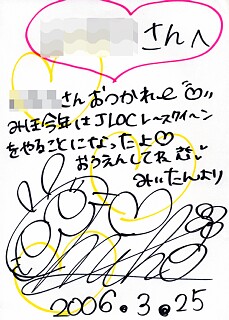 さんへ
さんおつかれe
みほ今年はJLOCレースクイーン
をやることになったよ♡
おうえんしてね
みほたんより
Miho
2006.3.25